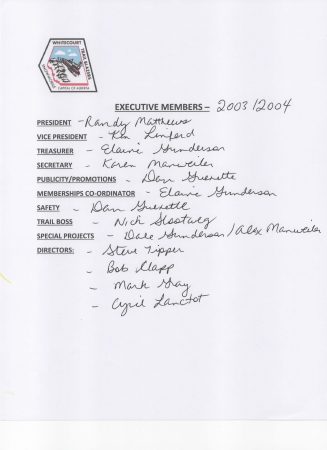 WHITECOURT
TRAIL BLAZERS
SNOWMOBILE
CAPITAL OF ALBERTA
EXECUTIVE MEMBERS – 2003/2004
PRESIDENT - Randy Matthews
VICE PRESIDENT - Ken Linford
TREASURER - Elaine Gunderson
SECRETARY - Karen Manweiler
PUBLICITY/PROMOTIONS - Dan Guenette
MEMBERSHIPS CO-ORDINATOR - Elaine Gunderson
SAFETY - Dan Guenette
TRAIL BOSS - Nick Slootweg
SPECIAL PROJECTS - Dale Gunderson/Alex Manweiler
DIRECTORS: - Steve Tipper
- Bob Clapp
- Mark Gray
- Cyril Lanctot